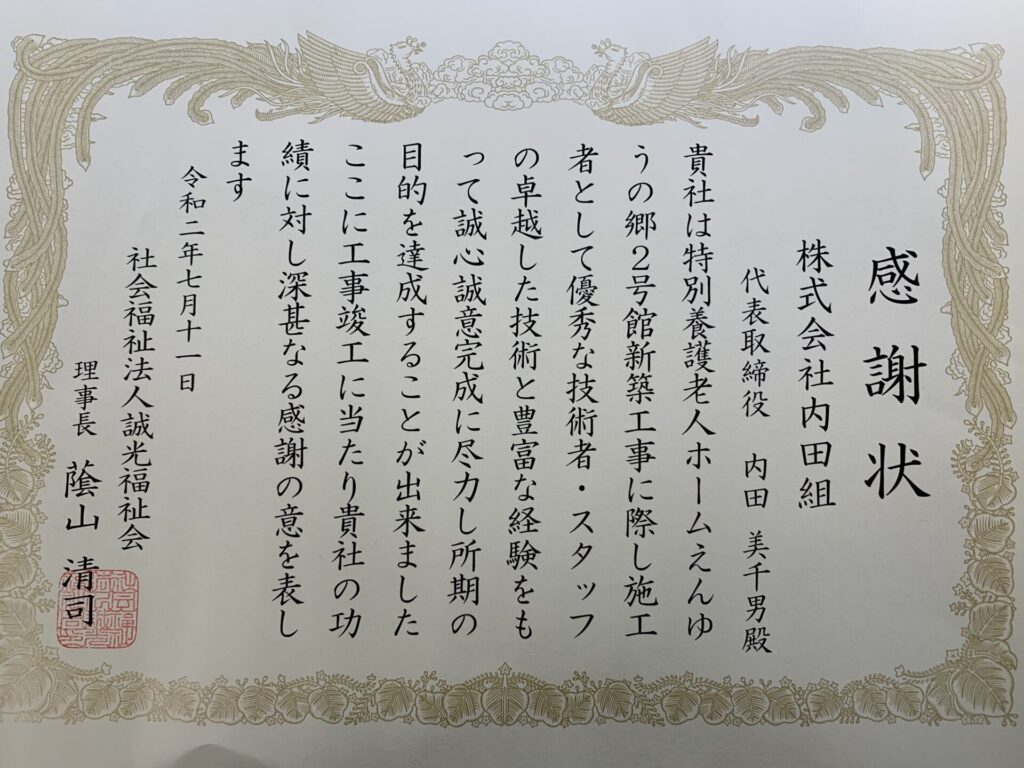 感謝状
株式会社内田組
代表取締役 内田 美千男殿
貴社は特別養護老人ホームえんゆ
うの郷2号館新築工事に際し施工
者として優秀な技術者・スタッフ
の卓越した技術と豊富な経験をも
って誠心誠意完成に尽力し所期の
目的を達成することが出来ました
ここに工事竣工に当たり貴社の功
績に対し深甚なる感謝の意を表し
ます
令和二年七月十一日
社会福祉法人誠光福祉会
理事長 蔭山 清司